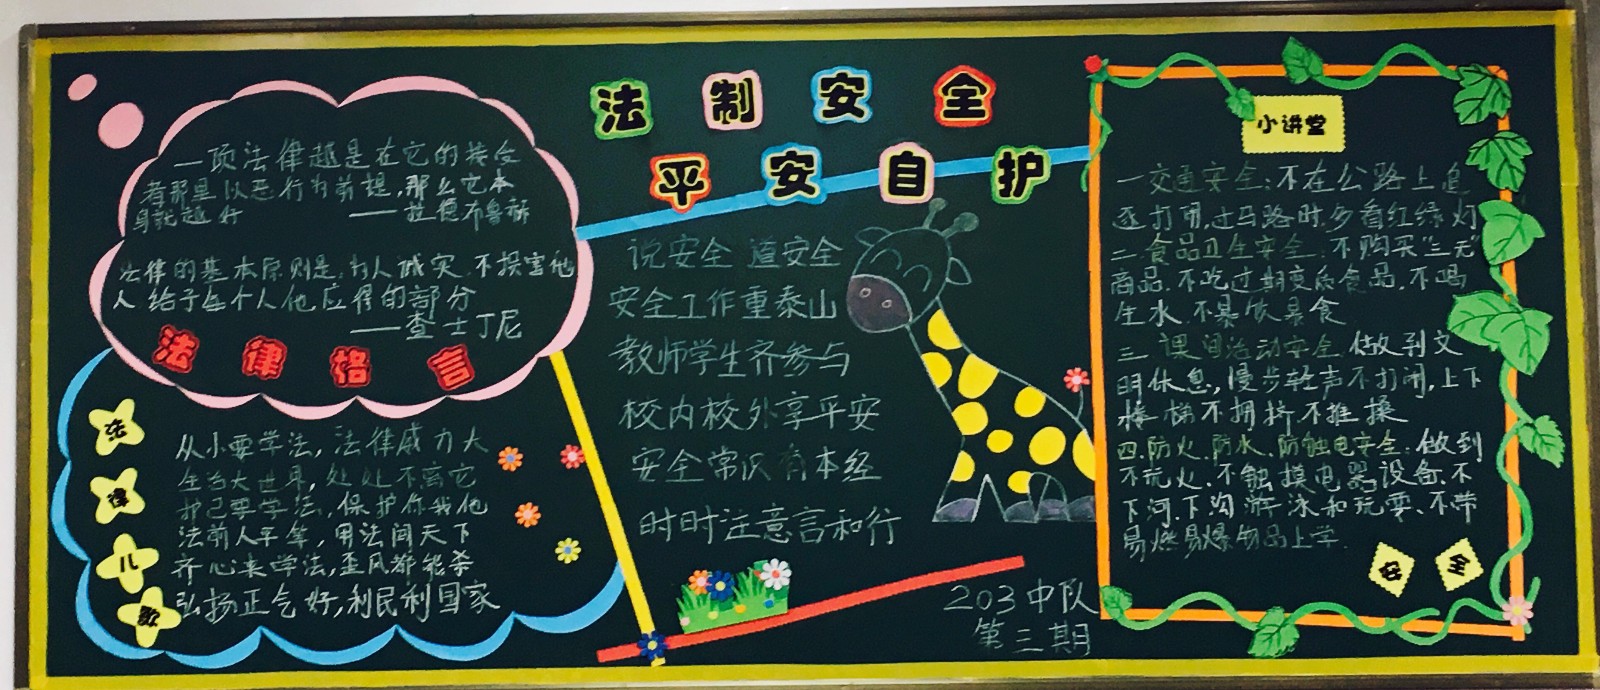 法制安全
平安自护
一项法律越是在它的接受
者那里以恶行为前提,那么它本
身就越好 ——拉德布鲁赫
法律的基本原则是:为人诚实,不损害他
人 给予每个人他应得的部分
——查士丁尼
法律格言
法律儿歌
从小要学法,法律威力大
生当大世界,处处不离它
护己要学法,保护你我他
法前人平等,用法闯天下
齐心来学法,歪风都能杀
弘扬正气好,利民利国家
说安全 道安全
安全工作重泰山
教师学生齐参与
校内校外享平安
安全常识有本经
时时注意言和行
203中队
第三期
小讲堂
一.交通安全:不在公路上追
逐打闹,过马路时,多看红绿灯
二.食品卫生安全:不购买"三无"
商品.不吃过期变质食品.不喝
生水.不暴饮暴食
三.课间活动安全.做到文
明休息,慢步轻声不打闹,上下
楼梯不拥挤不推搡
四.防火.防水.防触电安全:做到
不玩火.不触摸电器设备.不
下河.下沟游泳和玩耍、不带
易燃易爆物品上学.
安全